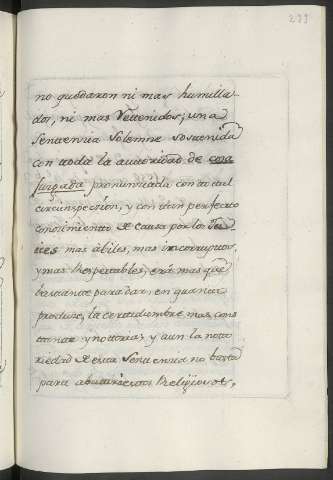 233
no quedaron ni mas humilla-
dos, ni mas vencidos; una
Sentencia Solemne sostenida
con toda la autoridad de cosa
Jusgada pronunciada con tal
circunspeccion, y con tan perfecto
conocimiento de causa por los Jue-
ces mas abiles, mas incorruptos,
y mas Respetables, era mas que
bastante para dar, en quanto
produce, la certidumbre mas cons
tante y notoria; y aun la noto
riedad de esta Sentencia no basta
para abatir estos Religiosos,